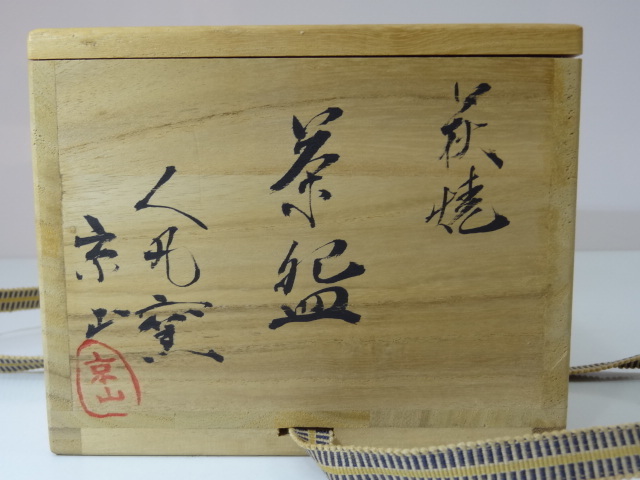 萩焼
茶盌
人丸窯
京山
京山